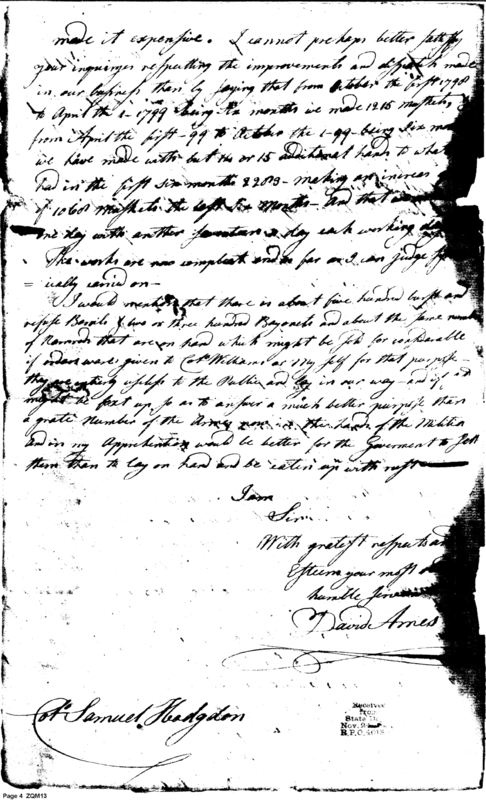 made it expensive. I cannot perhaps better satisfy
your inquiries respecting the improvements and dispatch made
in our business than by saying that from October the first 1798
to April the 1- 1799 being six months we made 1215 muskets
from April the first -99 to October the 1-99- being six mon
we have made with but ten or 15 additional hands to what
had in the first six months 2283- making an increas
of 1068 muskets the last six months- and that
one day with another seventeen a day each working day
The works are now compleat and as far as I can judge
ically carried on-
I would mention that there is about five hundred burst and
refuse Barrils & two or three hundred Bayonets and about the same numb
of Ramrods that are on hand which might be sold for considerable
if orders ware given to Cot. Williams or my self for that purpose-
they are intirely useless to the Publie and lay in our way- and if
might be fixt up so as to answer a much better purpose than
a grate number of the Arms now in the hands of the Militia
and in my Apprehention would be better for the Government to sell
them than to lay on hand and be eaten up with rust
I am
Sir
With gratest respects and
Esteem your most
humble Servant
David Ames
Cot. Samuel Hodgdon
Received
from
State D
Nov. 2
R.P.O.
Page 4 ZQM13